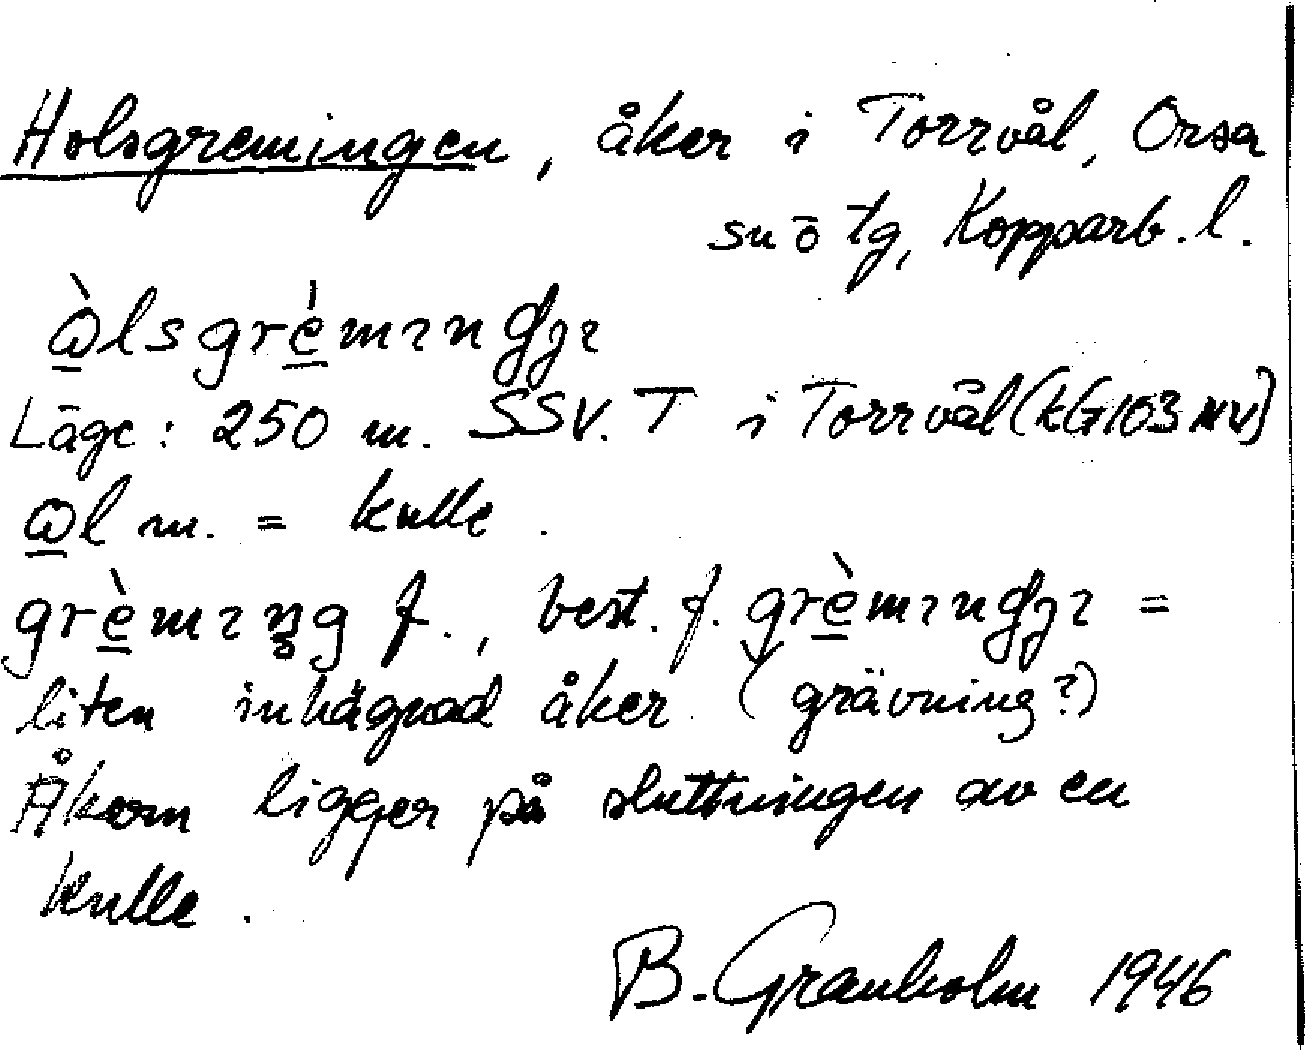 Holsgremingen, åker i Torrvål, Orsa
sn ö tg, Kopparb. l.
Läge: 250 m. SSV. T i Torrvål (kG103NV)
m. = kulle.
f., best. f. =
liten inhägnad åker. (grävning?)
Åkern ligger på sluttningen av en
kulle.
B. Granholm 1946